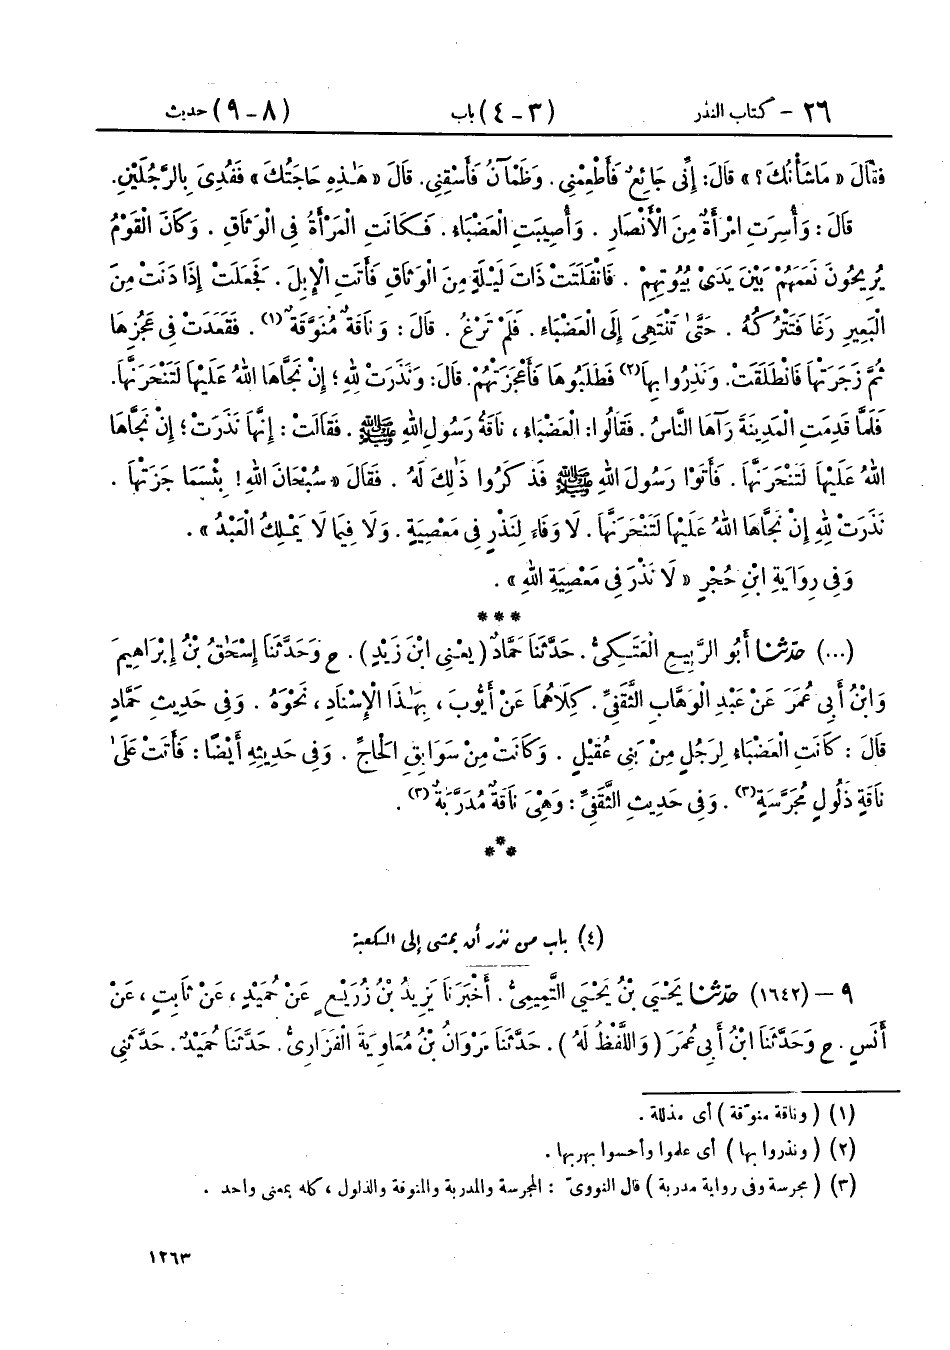 ٢٦ - كتاب النذر (٣ - ٤) باب (٨ - ٩) حديث
فَقَالَ « مَاشَأْنُكَ ؟ » قَالَ: إِنِّي جَائِعٌ فَأَطْعِمْنِي. وَظَمْآنُ فَأَسْقِنِي. قَالَ « هَـٰذِهِ حَاجَتُكَ » فَفُدِيَ بِالرَّجُلَيْنِ.
قَالَ : وَأُسِرَتِ امْرَأَةٌ مِنَ الْأَنْصَارِ . وَأُصِيبَتِ الْعَضْبَاءُ . فَكَانَتِ الْمَرْأَةُ فِي الْوَثَاقِ . وَكَانَ الْقَوْمُ
يُرِيحُونَ نَعَمَهُمْ بَيْنَ يَدَيْ بُيُوتِهِمْ . فَانْفَلَتَتْ ذَاتَ لَيْلَةٍ مِنَ الْوَثَاقِ فَأَتَتِ الْإِبِلَ . فَجَعَلَتْ إِذَا دَنَتْ مِنَ
الْبَعِيرِ رَغَا فَتَتْرُكُهُ . حَتَّىٰ تَنْتَهِيَ إِلَى الْعَضْبَاءِ . فَلَمْ تَرْغُ . قَالَ : وَنَاقَةٌ مُنَوَّقَةٌ (١) . فَقَعَدَتْ فِي عَجُزِهَا
ثُمَّ زَجَرَتْهَا فَانْطَلَقَتْ. وَنَذِرُوا بِهَا(٢) فَطَلَبُوهَا فَأَعْجَزَتْهُمْ. قَالَ: وَنَذَرَتْ لِلهِ ؛ إِنْ نَجَّاهَا اللهُ عَلَيْهَا لَتَنْحَرَنَّهَا.
فَلَمَّا قَدِمَتِ الْمَدِينَةَ رَآهَا النَّاسُ . فَقَالُوا: الْعَضْبَاءُ ، نَاقَةُ رَسُولِ اللهِ ﷺ . فَقَالَتْ : إِنَّهَا نَذَرَتْ ؛ إِنْ نَجَّاهَا
اللهُ عَلَيْهَا لَتَنْحَرَنَّهَا . فَأَتَوْا رَسُولَ اللهِ ﷺ فَذَكَرُوا ذَٰلِكَ لَهُ . فَقَالَ « سُبْحَانَ اللهِ ! بِئْسَمَا جَزَتْهَا .
نَذَرَتْ لِلهِ إِنْ نَجَّاهَا اللهُ عَلَيْهَا لَتَنْحَرَنَّهَا . لَا وَفَاءَ لِنَذْرٍ فِي مَعْصِيَةٍ . وَلَا فِيمَا لَا يَمْلِكُ الْعَبْدُ » .
وَفِي رِوَايَةِ ابْنِ حُجْرٍ « لَا نَذْرَ فِي مَعْصِيَةِ اللهِ » .
* * *
(...) حَدَّثَنَا أَبُو الرَّبِيعِ الْعَتَكِيُّ . حَدَّثَنَا حَمَّادٌ (يَعْنِي ابْنَ زَيْدٍ) . ح وَحَدَّثَنَا إِسْحَٰقُ بْنُ إِبْرَاهِيمَ
وَابْنُ أَبِي عُمَرَ عَنْ عَبْدِ الْوَهَّابِ الثَّقَفِيِّ . كِلَاهُمَا عَنْ أَيُّوبَ ، بِهَـٰذَا الْإِسْنَادِ ، نَحْوَهُ . وَفِي حَدِيثِ حَمَّادٍ
قَالَ : كَانَتِ الْعَضْبَاءُ لِرَجُلٍ مِنْ بَنِي عُقَيْلٍ . وَكَانَتْ مِنْ سَوَابِقِ الْحَاجِّ . وَفِي حَدِيثِهِ أَيْضًا : فَأَتَتْ عَلَىٰ
نَاقَةٍ ذَلُولٍ مُجَرَّسَةٍ(٣) . وَفِي حَدِيثِ الثَّقَفِيِّ : وَهِيَ نَاقَةٌ مُدَرَّبَةٌ (٣) .
***
(٤) باب من نذر أن يمشى إلى الكعبة
٩ - (١٦٤٢) حَدَّثَنَا يَحْيَي بْنُ يَحْيَي التَّمِيمِيُّ . أَخْبَرَنَا يَزِيدُ بْنُ زُرَيْعٍ عَنْ حُمَيْدٍ ، عَنْ ثَابِتٍ ، عَنْ
أَنَسٍ . ح وَحَدَّثَنَا ابْنُ أَبِي عُمَرَ ( وَاللَّفْظُ لَهُ ) . حَدَّثَنَا مَرْوَانُ بْنُ مُعَاوِيَةَ الْفَزَارِيُّ . حَدَّثَنَا حُمَيْدٌ . حَدَّثَنِي
(١) ( وناقة منوّقة ) أى مذللة .
(٢) ( ونذروا بها ) أى علموا وأحسوا بهربها .
(٣) ( مجرسة وفى رواية مدربة ) قال النووىّ : المجرسة والمدربة والمنوقة والذلول ، كله بمعنى واحد .
١٢٦٣